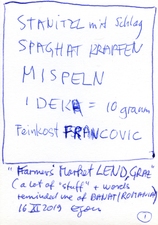 STANITZEL mit Schlag
SPAGHAT KRAPFEN
MISPELN
1 DEKA = 10 gramm
Feinkost FRANCOVIC
"Farmers' Market LEND, GRAZ"
(a lot of "stuff" + words
reminded me of BANAT/ROMANIA)
16 XI 2019
1